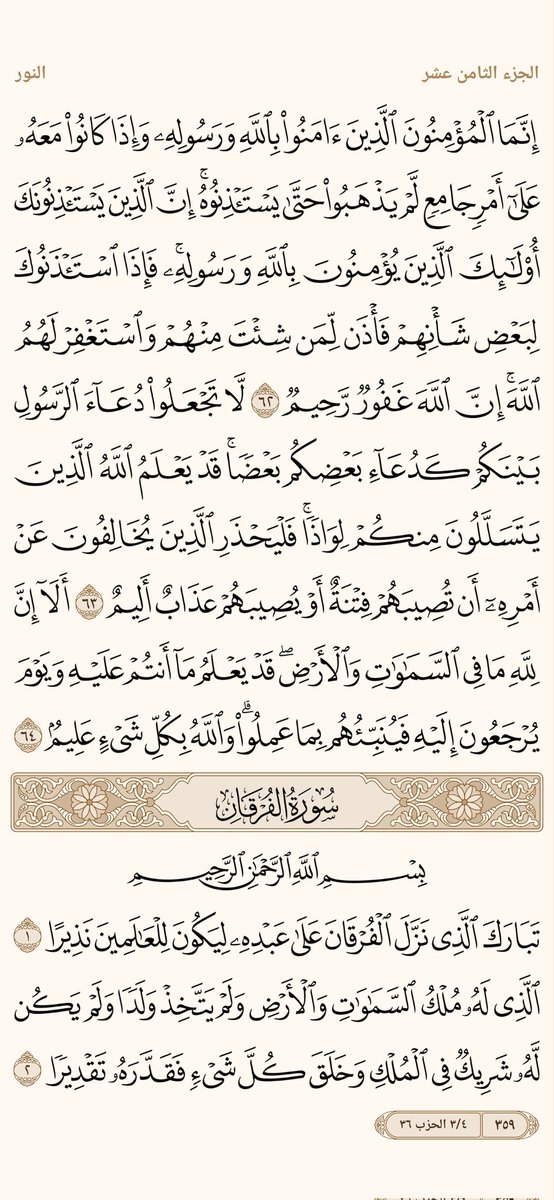 الجزء الثامن عشر
النور
إِنَّمَا ٱلۡمُؤۡمِنُونَ ٱلَّذِينَ ءَامَنُواْ بِٱللَّهِ وَرَسُولِهِۦ وَإِذَا كَانُواْ مَعَهُۥ
عَلَىٰٓ أَمۡرٖ جَامِعٖ لَّمۡ يَذۡهَبُواْ حَتَّىٰ يَسۡتَـٔۡذِنُوهُۚ إِنَّ ٱلَّذِينَ يَسۡتَـٔۡذِنُونَكَ
أُوْلَـٰٓئِكَ ٱلَّذِينَ يُؤۡمِنُونَ بِٱللَّهِ وَرَسُولِهِۦۚ فَإِذَا ٱسۡتَـٔۡذَنُوكَ
لِبَعۡضِ شَأۡنِهِمۡ فَأۡذَن لِّمَن شِئۡتَ مِنۡهُمۡ وَٱسۡتَغۡفِرۡ لَهُمُ
ٱللَّهَۚ إِنَّ ٱللَّهَ غَفُورٞ رَّحِيمٞ ٦٢ لَّا تَجۡعَلُواْ دُعَآءَ ٱلرَّسُولِ
بَيۡنَكُمۡ كَدُعَآءِ بَعۡضِكُم بَعۡضٗاۚ قَدۡ يَعۡلَمُ ٱللَّهُ ٱلَّذِينَ
يَتَسَلَّلُونَ مِنكُمۡ لِوَاذٗاۚ فَلۡيَحۡذَرِ ٱلَّذِينَ يُخَالِفُونَ عَنۡ
أَمۡرِهِۦٓ أَن تُصِيبَهُمۡ فِتۡنَةٌ أَوۡ يُصِيبَهُمۡ عَذَابٌ أَلِيمٌ ٦٣ أَلَآ إِنَّ
لِلَّهِ مَا فِي ٱلسَّمَٰوَٰتِ وَٱلۡأَرۡضِۖ قَدۡ يَعۡلَمُ مَآ أَنتُمۡ عَلَيۡهِ وَيَوۡمَ
يُرۡجَعُونَ إِلَيۡهِ فَيُنَبِّئُهُم بِمَا عَمِلُواْۗ وَٱللَّهُ بِكُلِّ شَيۡءٍ عَلِيمُۢ ٦٤
سُورَةُ الفُرۡقَانِ
بِسۡمِ ٱللَّهِ ٱلرَّحۡمَٰنِ ٱلرَّحِيمِ
تَبَارَكَ ٱلَّذِي نَزَّلَ ٱلۡفُرۡقَانَ عَلَىٰ عَبۡدِهِۦ لِيَكُونَ لِلۡعَٰلَمِينَ نَذِيرًا ١
ٱلَّذِي لَهُۥ مُلۡكُ ٱلسَّمَٰوَٰتِ وَٱلۡأَرۡضِ وَلَمۡ يَتَّخِذۡ وَلَدٗا وَلَمۡ يَكُن
لَّهُۥ شَرِيكٞ فِي ٱلۡمُلۡكِ وَخَلَقَ كُلَّ شَيۡءٖ فَقَدَّرَهُۥ تَقۡدِيرٗا ٢
٣٥٩
٣/٤ الحزب ٣٦